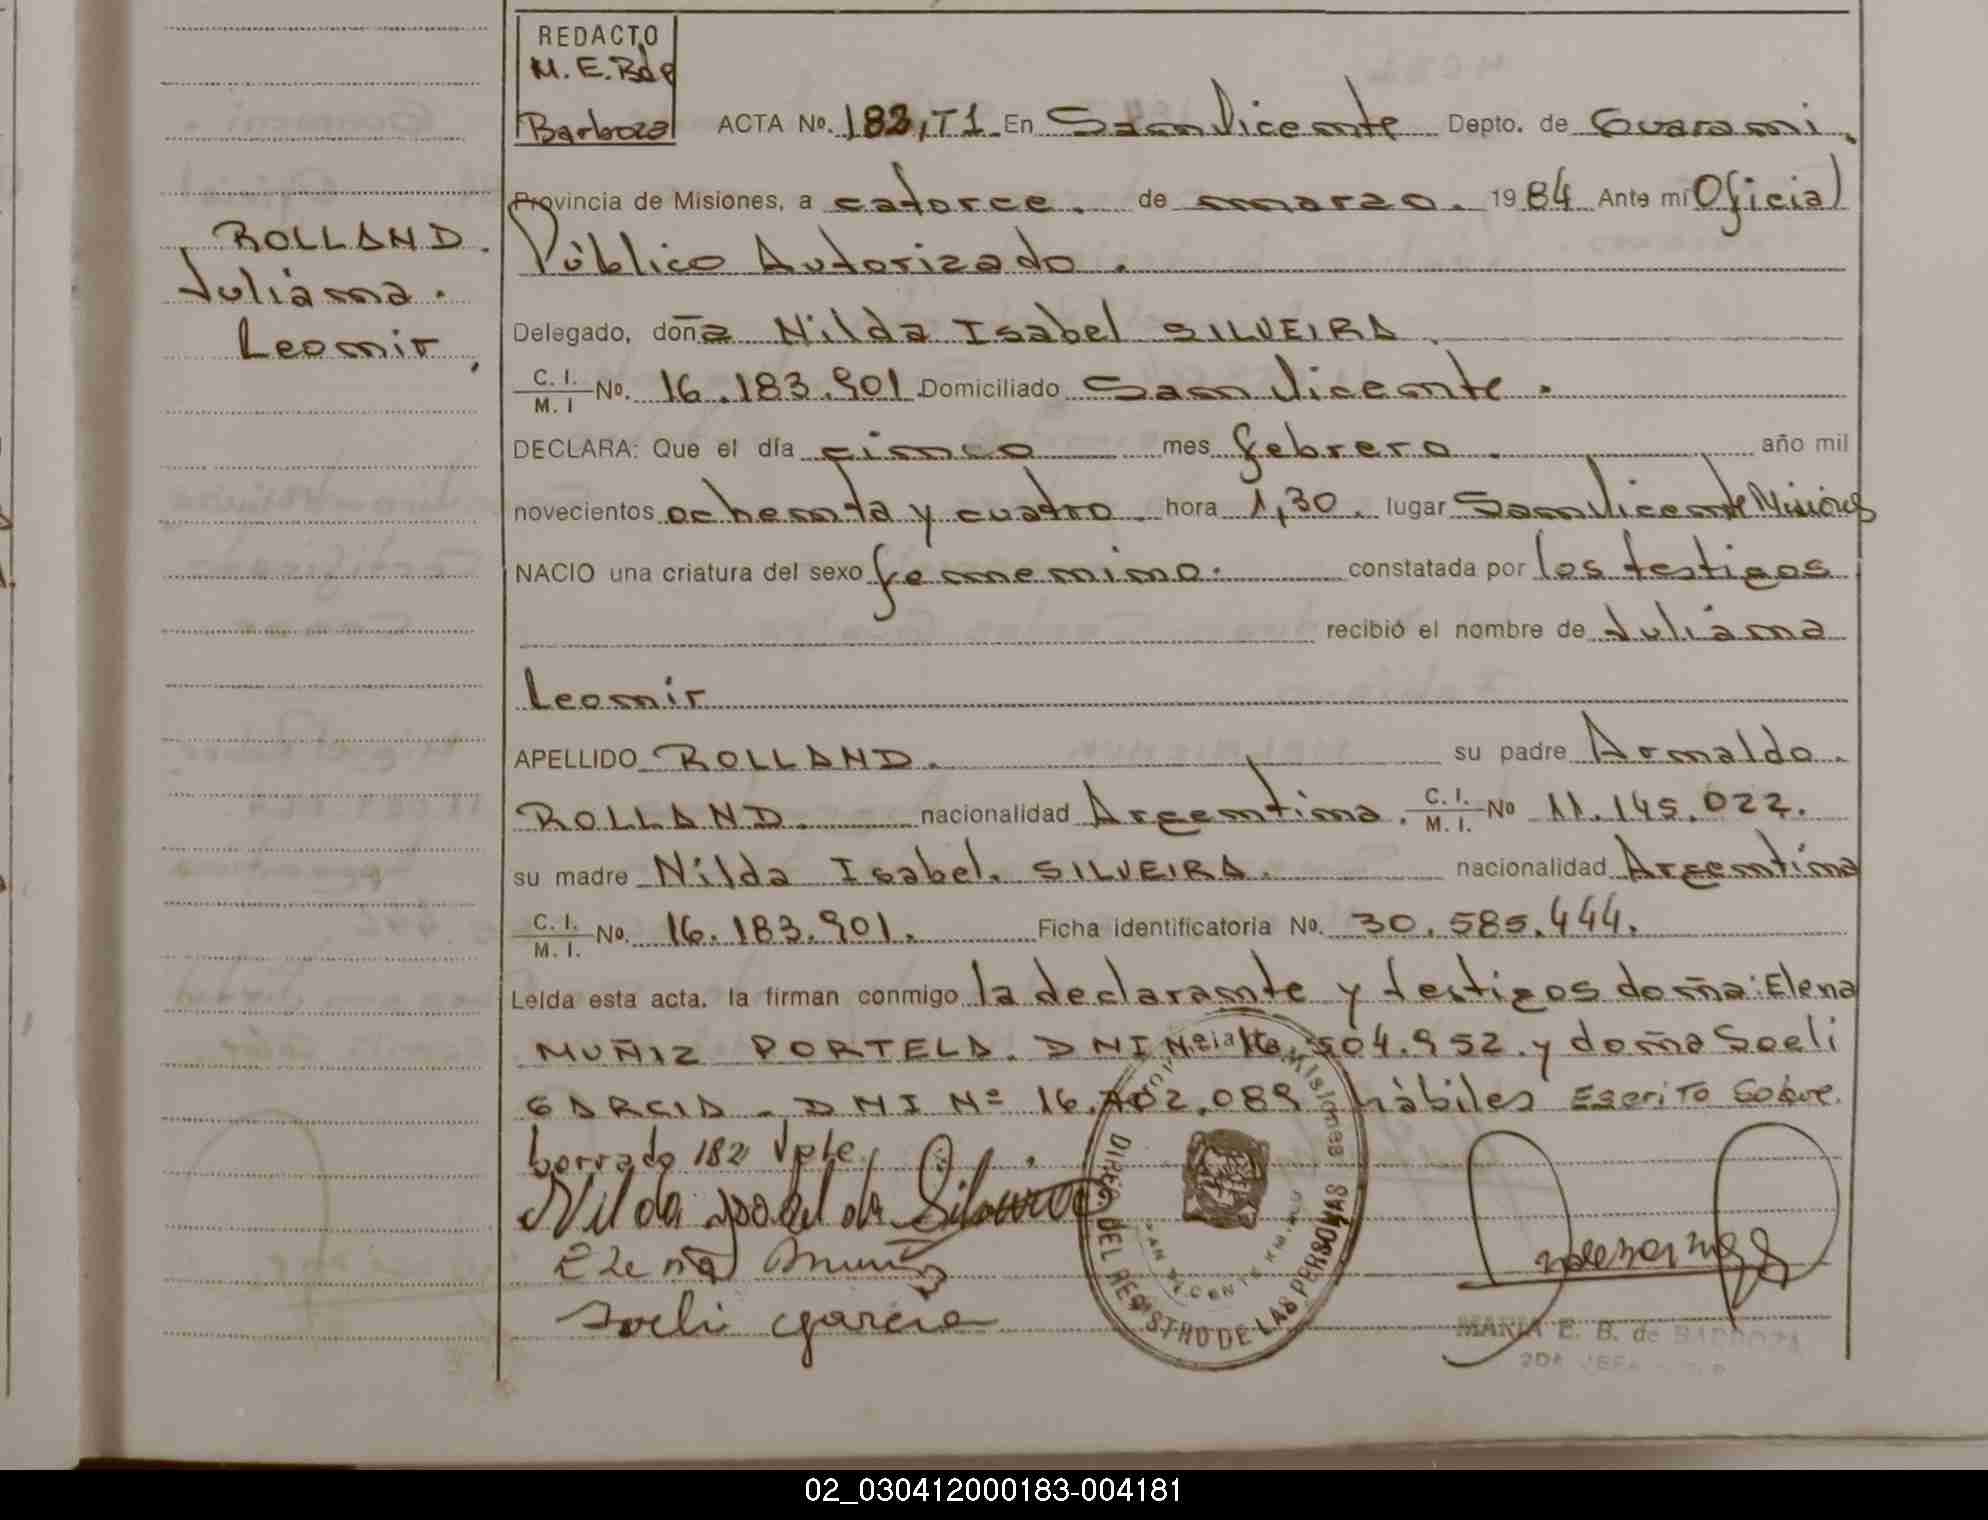 REDACTO
M. E. B de
Barboza
ACTA No. 182, T1 En San Vicente Depto. de Guarani.
Provincia de Misiones, a catorce. de marzo. 1984 Ante mi Oficial
Público Autorizado.
ROLLAND.
Juliana.
Leonir,
Delegado, doña Nilda Isabel SILVEIRA
C. I. / M. I No. 16.183.901 Domiciliado San Vicente.
DECLARA: Que el día cinco mes febrero. año mil
novecientos ochenta y cuatro. hora 1,30. lugar San Vicente Misiones
NACIO una criatura del sexo femenino. constatada por los testigos
recibió el nombre de Juliana
Leonir
APELLIDO ROLLAND. su padre Arnaldo.
ROLLAND. nacionalidad Argentina. C. I. / M. I. No 11.145.022.
su madre Nilda Isabel. SILVEIRA. nacionalidad Argentina
C. I. / M. I. No. 16.183.901. Ficha identificatoria No. 30.585.444.
Leída esta acta. la firman conmigo la declarante y testigos doña: Elena
MUÑIZ PORTELA. DNI 504.952. y doña Soeli
GARCIA - DNI Nº 16.702.089 hábiles Escrito Sobre.
borrado 182 Vale.
Nilda Isabel da Silveira
Elena Muñiz
Soeli Garcia
DIREC. DEL REGISTRO DE LAS PERSONAS
MISIONES
SAN VICENTE
MARIA E. B. de BARBOZA
2DA JEFA
02_030412000183-004181